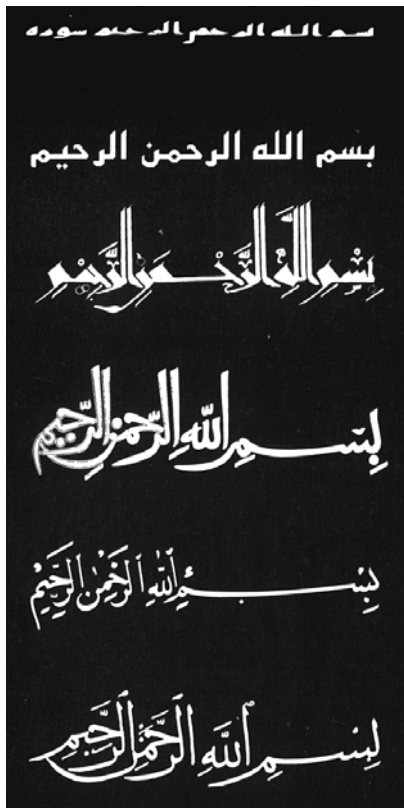 بسم الله الرحمن الرحيم سوره
بسم الله الرحمن الرحيم
بِسْمِ اللَّهِ الرَّحْمَنِ الرَّحِيمِ
بِسْمِ اللَّهِ الرَّحْمنِ الرَّحِيمِ
بِسْمِ اللَّهِ الرَّحْمٰنِ الرَّحِيمِ
بِسْمِ اللَّهِ الرَّحْمَنِ الرَّحِيمِ